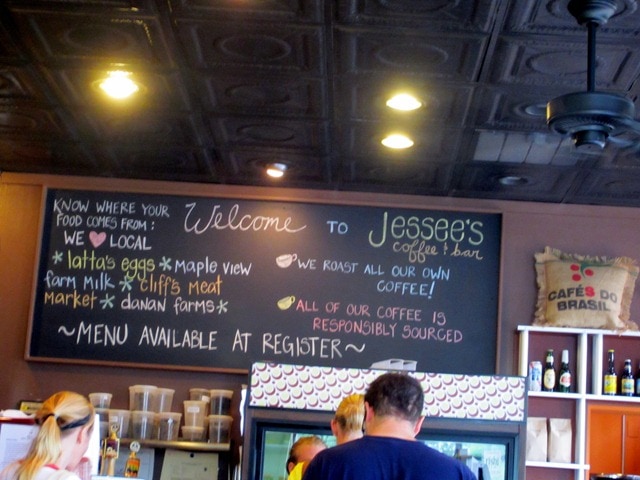 KNOW WHERE YOUR
FOOD COMES FROM:
WE LOCAL
* latta's eggs * MAPLE VIEW
farm MILK * CLIFF'S MEAT
MARKET * DANAN FARMS *
Welcome TO JESSEE'S
coffee & bar
WE ROAST ALL OUR OWN
COFFEE!
ALL OF OUR COFFEE IS
RESPONSIBLY SOURCED
~MENU AVAILABLE AT REGISTER~
CAFÉS DO
BRASIL